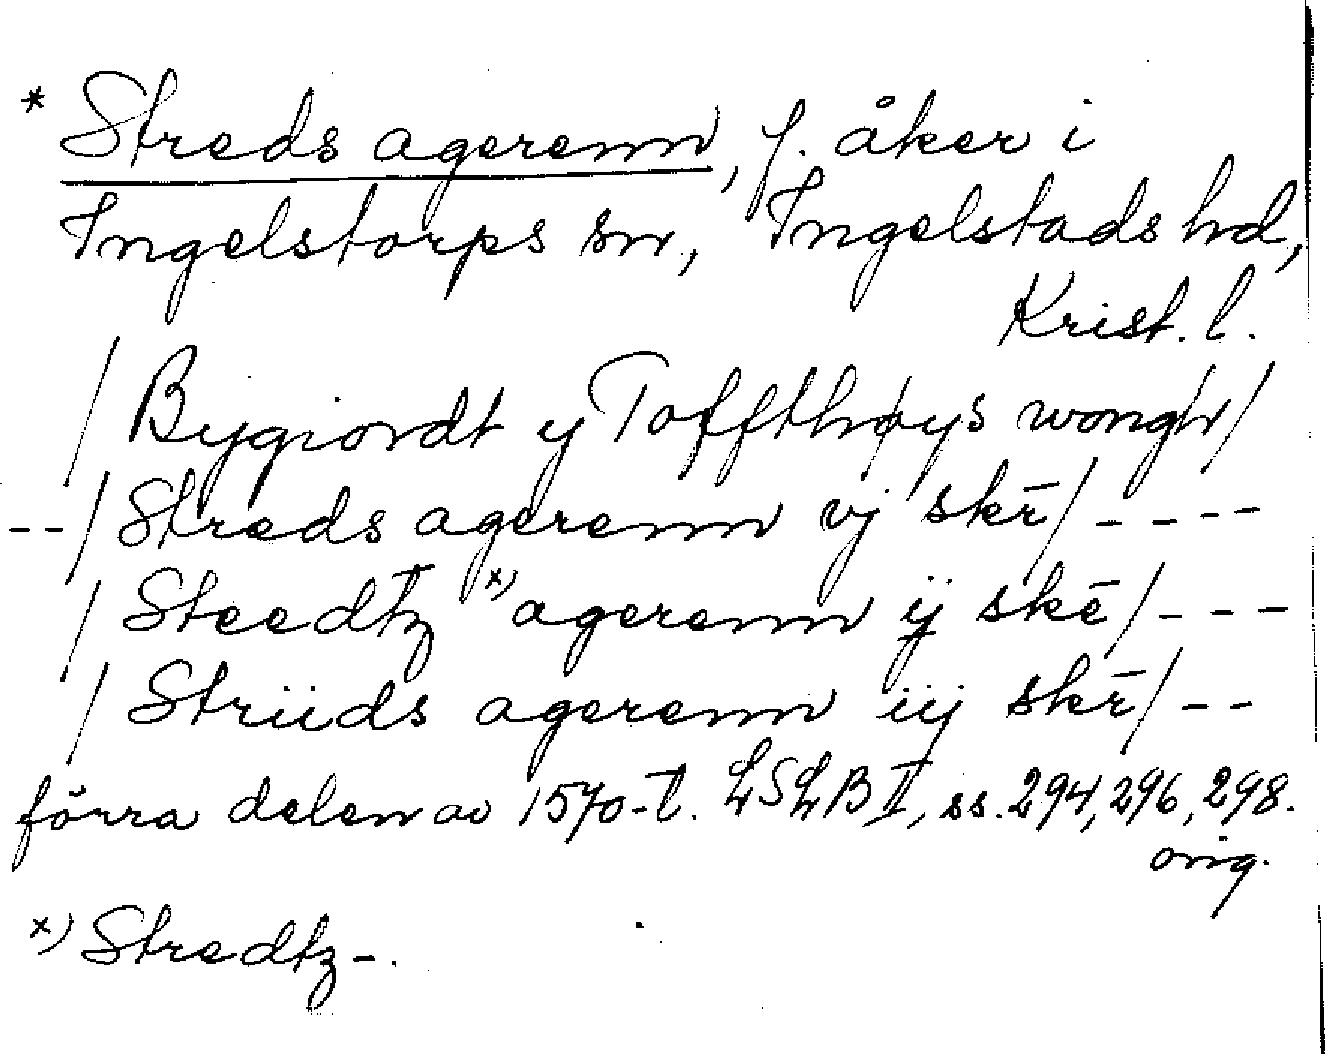 * Streds agerenn, f. åker i
Ingelstorps sn, Ingelstads hd,
Krist. l.
/ Bygiordt y Toffthøys wongh /
--/ Streds agerenn vj skr̄ /----
/ Steedtz x) agerenn ij skē /---
/ Striids agerenn iij skr̄ /--
förra delen av 1570-t. LSLB II, ss. 294, 296, 298.
orig.
x) Stredtz-.